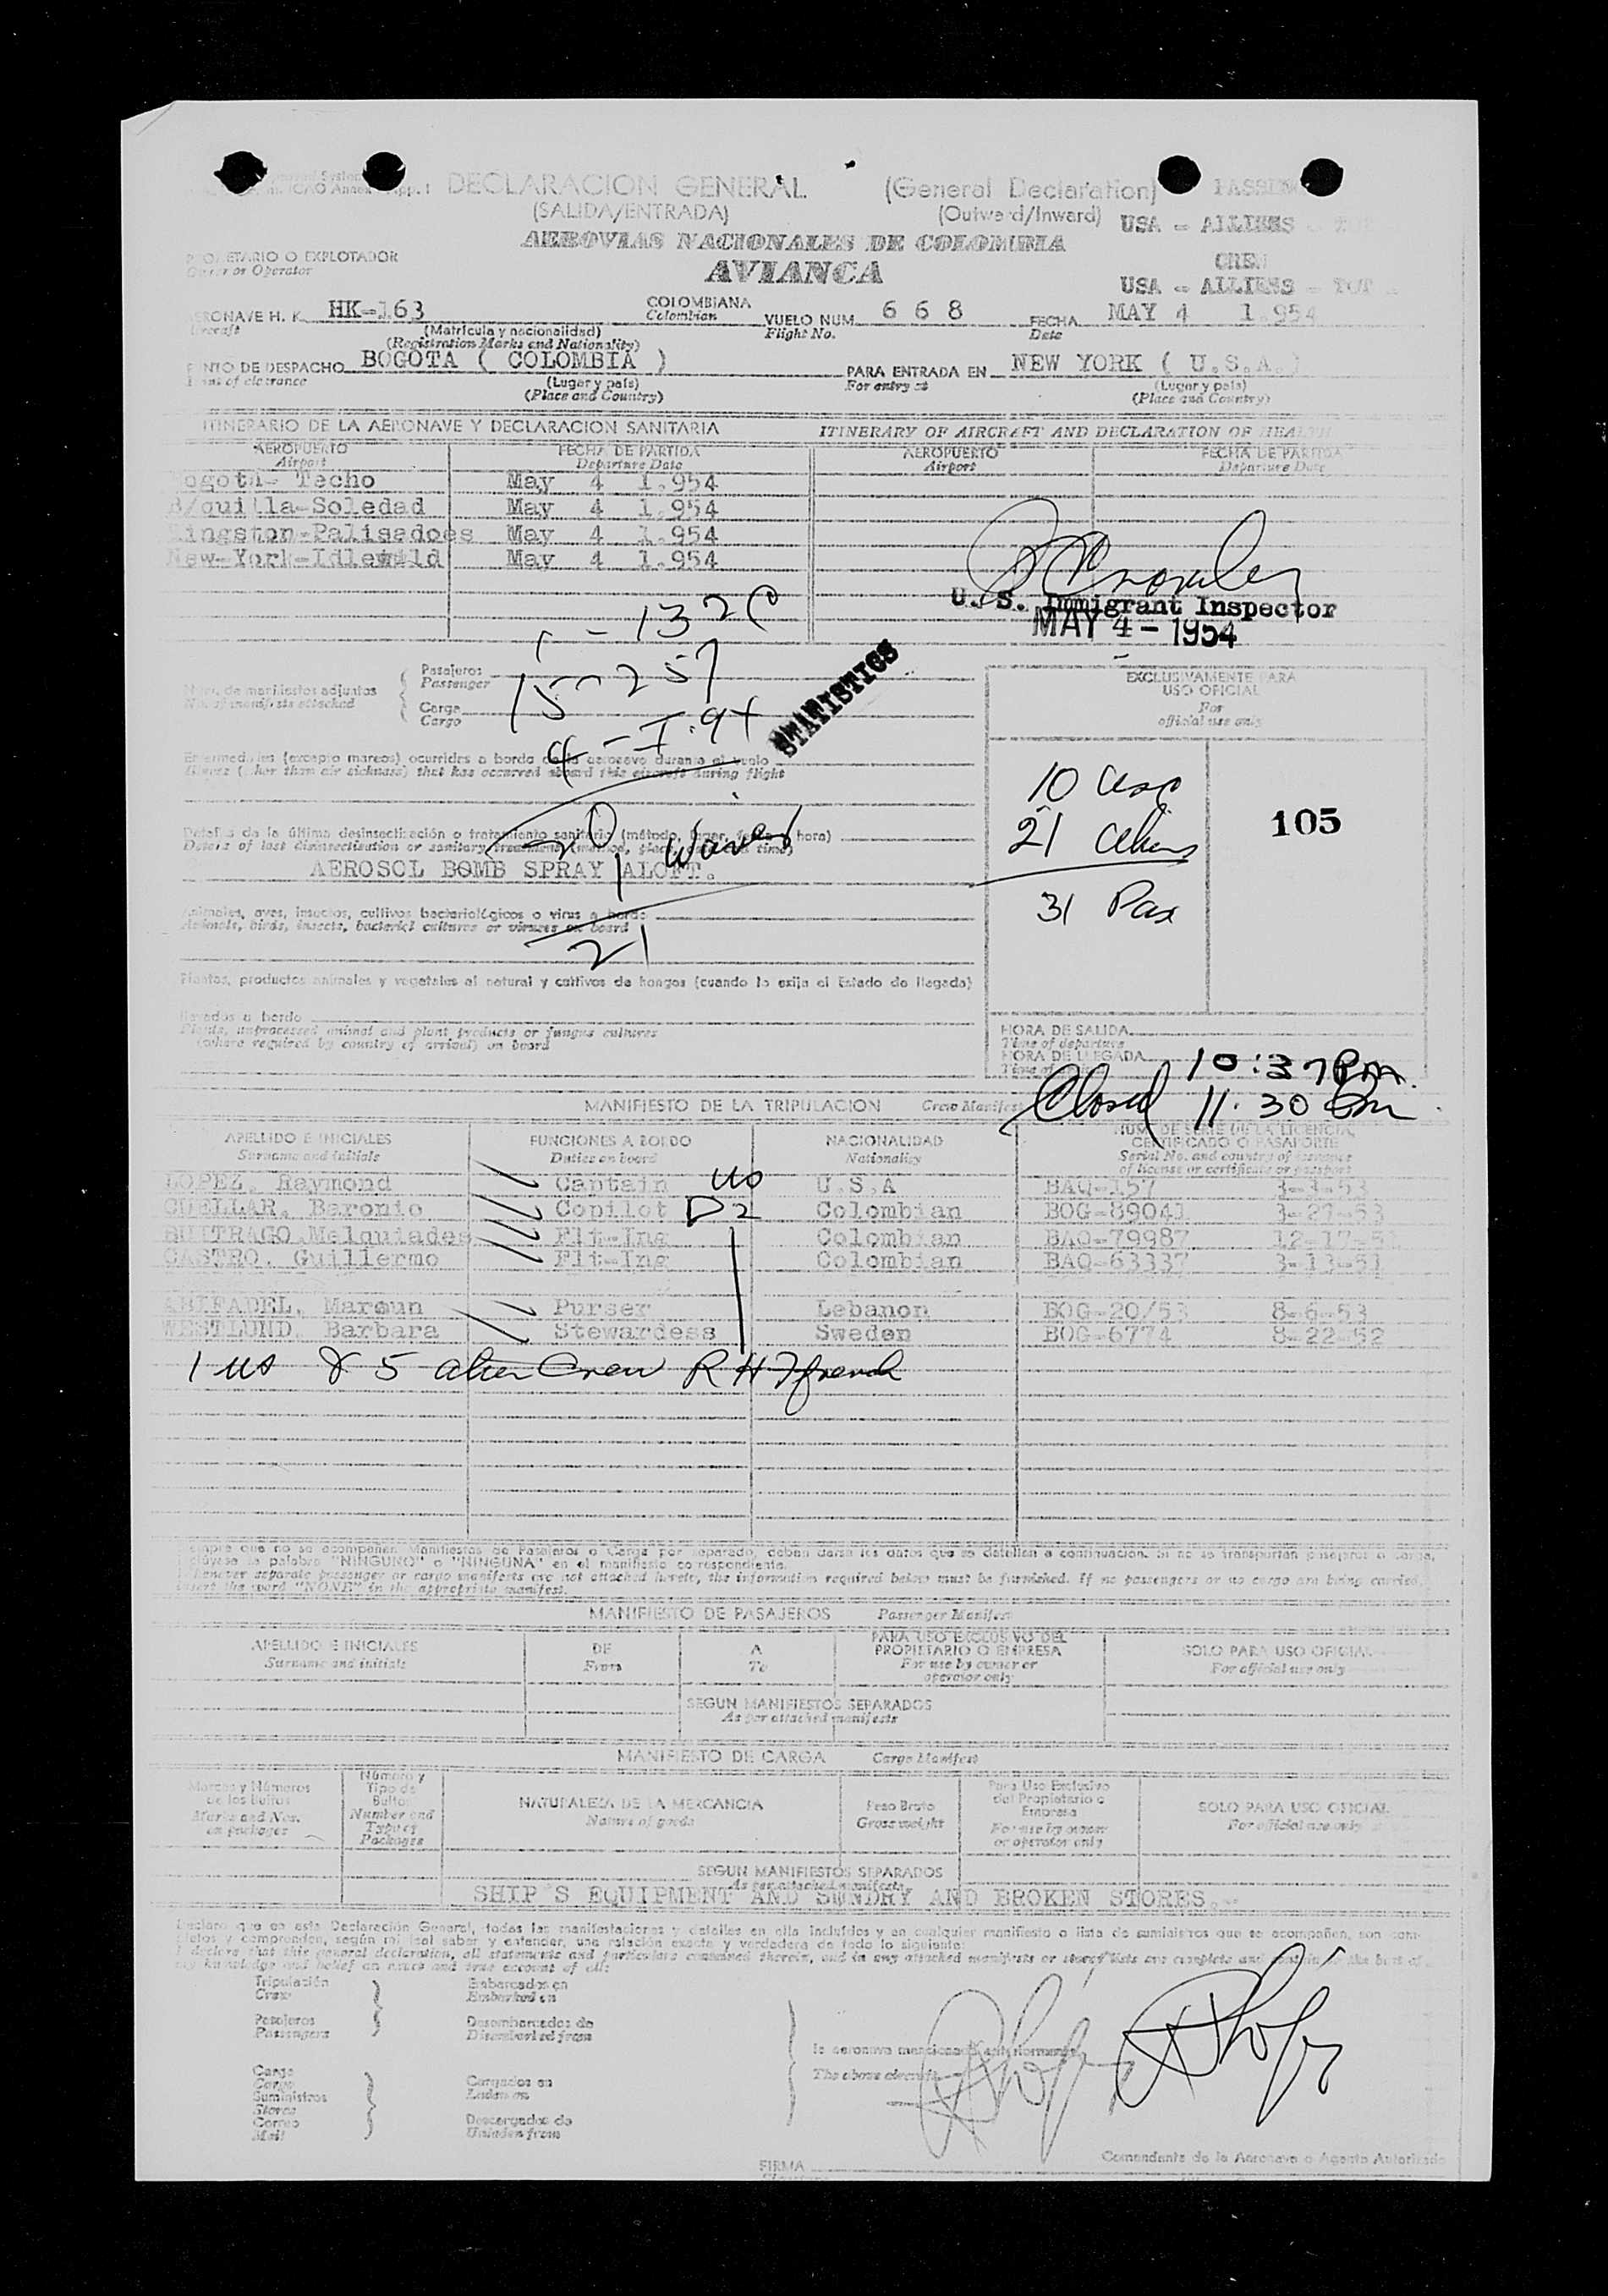 DECLARACION GENERAL (General Declaration)
(SALIDA/ENTRADA) (Outward/Inward)
USA - ALLIENS
AEROVIAS NACIONALES DE COLOMBIA
AVIANCA
CREW
USA - ALLIENS - TOT
PROPIETARIO O EXPLOTADOR
Owner or Operator
AERONAVE H. K. HK-163 COLOMBIANA VUELO NUM. 6 6 8 FECHA MAY 4 1.954
Aircraft (Matrícula y nacionalidad) Colombian Flight No. Date
(Registration Marks and Nationality)
PUNTO DE DESPACHO BOGOTA ( COLOMBIA ) PARA ENTRADA EN NEW YORK ( U.S.A. )
Point of clearance (Lugar y país) For entry at (Lugar y país)
(Place and Country) (Place and Country)
ITINERARIO DE LA AERONAVE Y DECLARACION SANITARIA ITINERARY OF AIRCRAFT AND DECLARATION OF HEALTH
AEROPUERTO FECHA DE PARTIDA AEROPUERTO FECHA DE PARTIDA
Airport Departure Date Airport Departure Date
Bogotá- Techo May 4 1.954
B/quilla-Soledad May 4 1.954
Kingston-Palisadoes May 4 1.954
New-York-Idlewild May 4 1.954
U. S. Immigrant Inspector
MAY 4 - 1954
132
Pasajeros
Passenger
15 257
Núm. de manifiestos adjuntos
No. of manifests attached
Carga
Cargo
STATISTICS
EXCLUSIVAMENTE PARA
USO OFICIAL
For
official use only
Enfermedades (excepto mareos) ocurridas a bordo de la aeronave durante el vuelo
Illness (other than air sickness) that has occurred aboard this aircraft during flight
10 usc
21 aliens
31 Pax
105
20
1 waived
21
Detalles de la última desinsectización o tratamiento sanitario (método, lugar, fecha y hora)
Details of last disinsectisation or sanitary treatment (method, place, date and time)
AEROSOL BOMB SPRAY ALOFT.
Animales, aves, insectos, cultivos bacteriológicos o virus a bordo
Animals, birds, insects, bacterial cultures or viruses on board
Plantas, productos animales y vegetales al natural y cultivos de hongos (cuando lo exija el Estado de llegada)
llevados a bordo
Plants, unprocessed animal and plant products or fungus cultures
(where required by country of arrival) on board
HORA DE SALIDA
Time of departure
HORA DE LLEGADA 10:37 PM.
Closed 11:30 Pm
MANIFIESTO DE LA TRIPULACION Crew Manifest
APELLIDO E INICIALES FUNCIONES A BORDO NACIONALIDAD NUM. DE SERIE DE LA LICENCIA, CERTIFICADO O PASAPORTE
Surname and initials Duties on board Nationality Serial No. and country of issuance of license or certificate or passport
LOPEZ, Raymond Captain US U.S.A BAQ-157 3-3-53
CUELLAR, Beronio Copilot D2 Colombian BOG-89041 3-27-53
BUITRAGO Melquiades Flt-Ing Colombian BAQ-79987 12-17-51
CASTRO, Guillermo Flt-Ing Colombian BAQ-63337 3-13-51
ABIFADEL, Maroun Purser Lebanon BOG-20/53 8-6-53
WESTLUND, Barbara Stewardess Sweden BOG-6774 8-22-52
1 us & 5 alien Crew
Siempre que no se acompañen Manifiestos de Pasajeros o Carga por separado, deben darse los datos que se detallan a continuación. Si no se transportan pasajeros o carga,
inclúyase la palabra "NINGUNO" o "NINGUNA" en el manifiesto correspondiente.
Whenever separate passenger or cargo manifests are not attached hereto, the information required below must be furnished. If no passengers or no cargo are being carried,
insert the word "NONE" in the appropriate manifest.
MANIFIESTO DE PASAJEROS Passenger Manifest
APELLIDO E INICIALES DE A PARA USO EXCLUSIVO DEL PROPIETARIO O EMPRESA SOLO PARA USO OFICIAL
Surname and initials From To For use by owner or operator only For official use only
SEGUN MANIFIESTOS SEPARADOS
As per attached manifests
MANIFIESTO DE CARGA Cargo Manifest
Marcas y Números de los Bultos Número y Tipo de Bultos NATURALEZA DE LA MERCANCIA Peso Bruto Para Uso Exclusivo del Propietario o Empresa SOLO PARA USO OFICIAL
Marks and Nos. on packages Number and Type of Packages Nature of goods Gross weight For use by owner or operator only For official use only
SEGUN MANIFIESTOS SEPARADOS
As per attached manifests
SHIP'S EQUIPMENT AND SUNDRY AND BROKEN STORES.
Declaro que en esta Declaración General, todas las manifestaciones y detalles en ella incluídos y en cualquier manifiesto o lista de suministros que se acompañan, son completos y comprenden, según mi leal saber y entender, una relación exacta y verdadera de todo lo siguiente:
I declare that this general declaration, all statements and particulars contained therein, and in any attached manifests or stores lists are complete and contain to the best of
my knowledge and belief an exact and true account of all:
Tripulación Embarcados en
Crew Embarked on
Pasajeros Desembarcados de
Passengers Disembarked from
la aeronave mencionada anteriormente
The above aircraft
Carga Cargados en
Cargo Laden on
Suministros
Stores
Correo Descargados de
Mail Unladen from
FIRMA Comandante de la Aeronave o Agente Autorizado